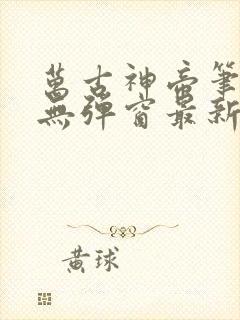 萬古神帝筆
無彈窗最新
黃球